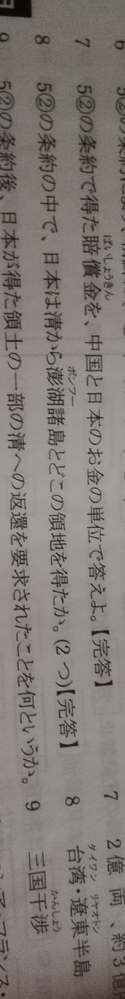 7 5②の条約で得た賠償金を、中国と日本のお金の単位で答えよ。【完答】
ばいしょうきん
8 5②の条約の中で、日本は清から澎湖諸島とどこの領地を得たか。(2つ)【完答】
ポンフー
9 5②の条約後、日本が得た領土の一部の清への返還を要求されたことを何というか。
7 2億両、約3億
8 台湾・遼東半島
タイワン リヤオトン
9 三国干渉
かんしょう